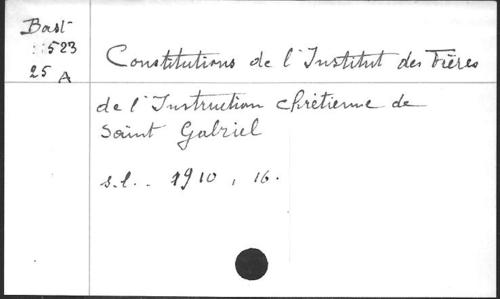 Bast
: : 523
25 A
Constitutions de l'Institut des Frères
de l'Instruction chrétienne de
Saint Gabriel
s.l.. 1910, 16.